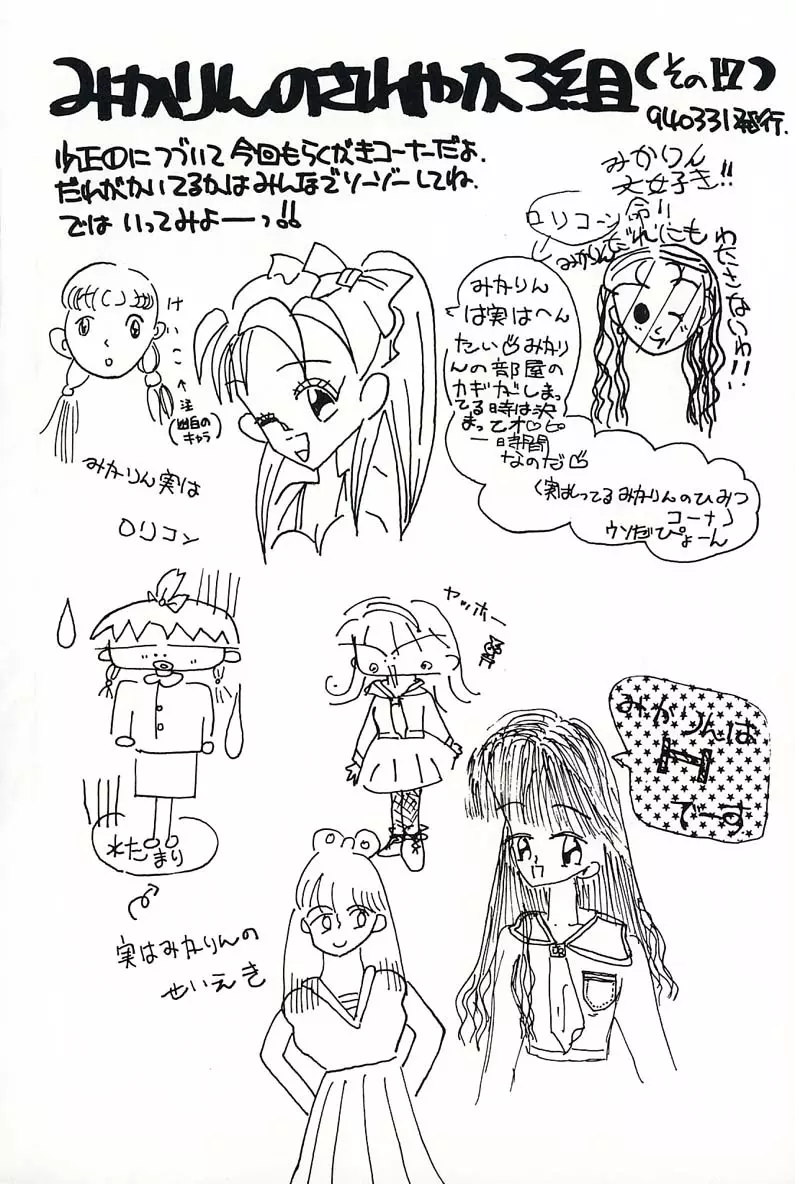 みかりんのさわやか3組(その17)
940331発行.
少正①につづいて今回もらくがきコーナーだよ.
だれがかいてるかはみんなでソーゾーしてね.
ではいってみよーっ!!
みかりん
大好き!!
命!!
みかりんだれにも
わたさないわ!!
ロリコーン
みかりん
は実はへん
たい♡みかり
んの部屋の
カギがしまっ
てる時は決
まってオ♡ピ
一時間
なのだ♡
けいこ
↑
注
(幽白の
キャラ)
みかりん実は
ロリコン
〈実はしってるみかりんのひみつ
コーナー〉
ウソだぴょーん
ヤッホー
みかりんは
H
でーす
水たまり
実はみかりんの
せいえき